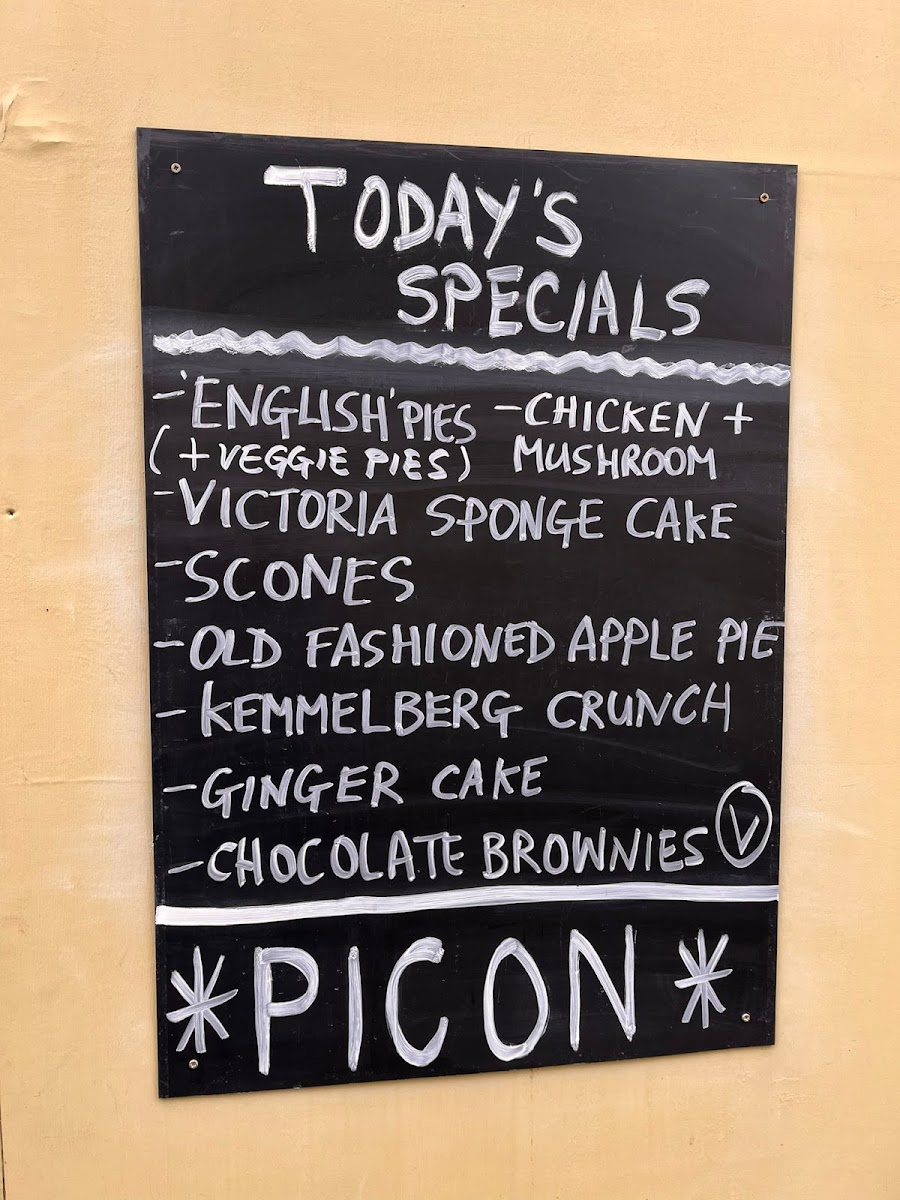 TODAY'S
SPECIALS
- 'ENGLISH' PIES - CHICKEN +
(+ VEGGIE PIES) MUSHROOM
- VICTORIA SPONGE CAKE
- SCONES
- OLD FASHIONED APPLE PIE
- KEMMELBERG CRUNCH
- GINGER CAKE
- CHOCOLATE BROWNIES V
* PICON *